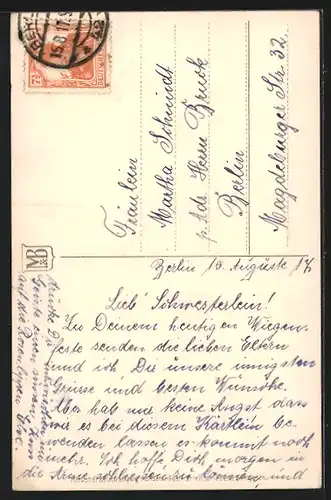 BER
15.8.17.9
7½
Fräulein
Martha Schmidt
p. Adr. Herrn Bruck
Berlin
Magdeburger Str. 32.
MB
Berlin 15 Auguste 17
Lieb' Schwesterlein!
Zu Deinem heutigen Wiegen-
feste senden die lieben Eltern
und ich Dir unsere innigsten
Grüsse und besten Wünsche.
Aber hab nur keine Angst dass
wir es bei diesem Kärtlein be-
wenden lassen es kommt noch
mehr. Ich hoffe Dich morgen in
die Arme schliessen zu können und
drücke Dir
Geiste einen süssen
auf die Rosenlippen